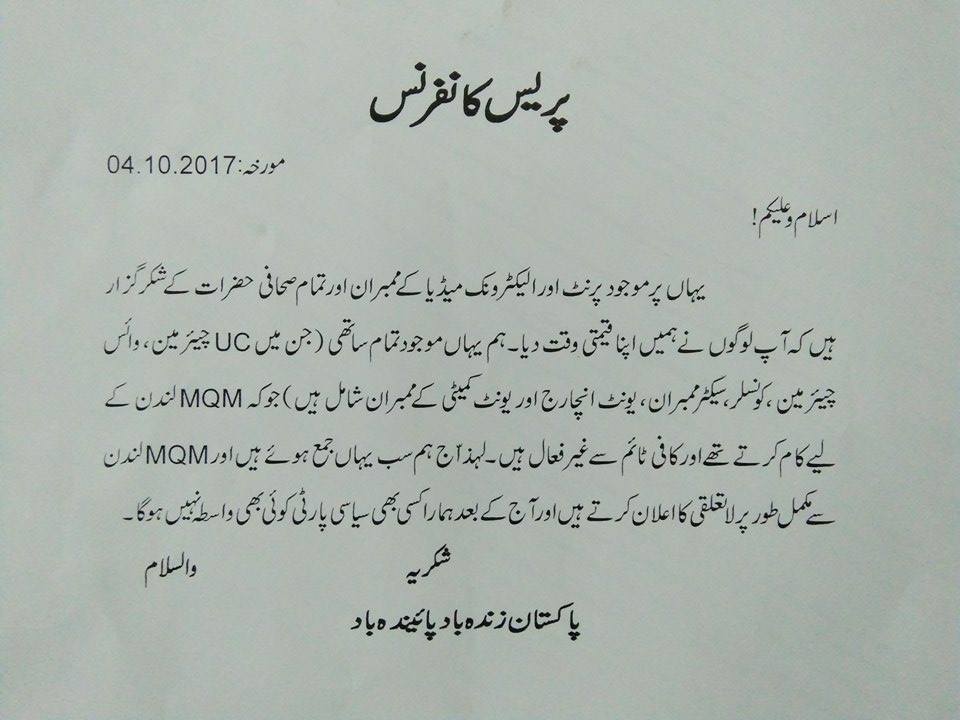 پریس کانفرنس
مورخہ:04.10.2017
اسلام وعلیکم!
یہاں پر موجود پرنٹ اور الیکٹرونک میڈیا کے ممبران اور تمام صحافی حضرات کے شکر گزار
ہیں کہ آپ لوگوں نے ہمیں اپنا قیمتی وقت دیا۔ ہم یہاں موجود تمام ساتھی (جن میں UC چیئر مین، وائس
چیئر مین، کونسلر، سیکٹر ممبران، یونٹ انچارج اور یونٹ کمیٹی کے ممبران شامل ہیں) جو کہ MQM لندن کے
لیے کام کرتے تھے اور کافی ٹائم سے غیر فعال ہیں۔ لہذا آج ہم سب یہاں جمع ہوئے ہیں اور MQM لندن
سے مکمل طور پر لاتعلقی کا اعلان کرتے ہیں اور آج کے بعد ہمارا کسی بھی سیاسی پارٹی کوئی بھی واسطہ نہیں ہوگا۔
شکریہ والسلام
پاکستان زندہ باد پائیندہ باد